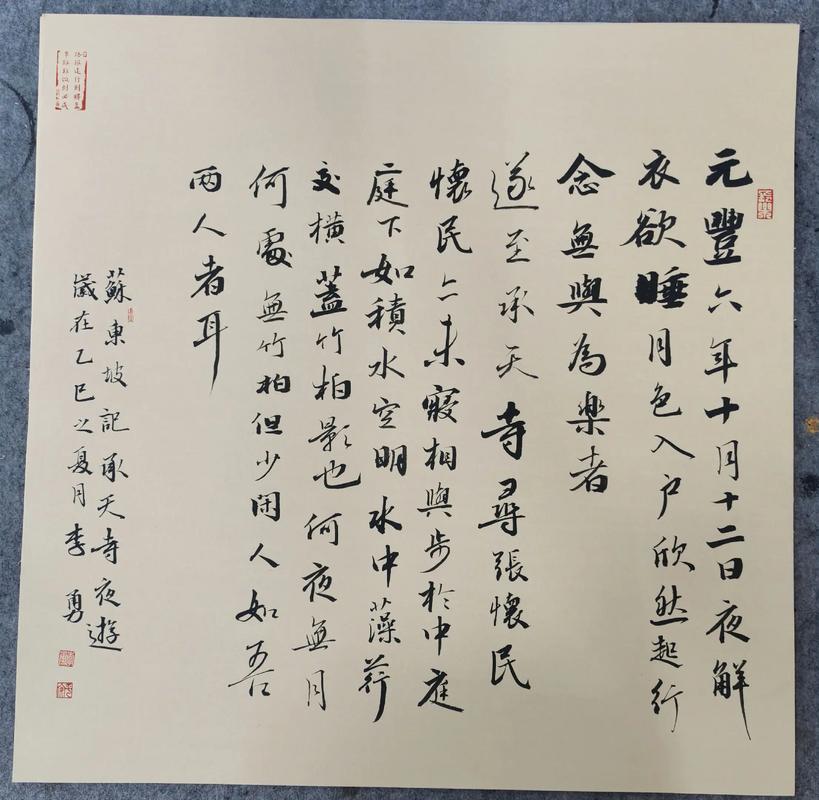 元豐六年十月十二日夜解
衣欲睡月色入户欣然起行
念無與為樂者
遂至承天寺尋張懷民
懷民亦未寢相與步於中庭
庭下如積水空明水中藻荇
交橫蓋竹柏影也何夜無月
何處無竹柏但少閑人如吾
兩人者耳
蘇東坡記承天寺夜遊
歲在乙巳之夏月李勇